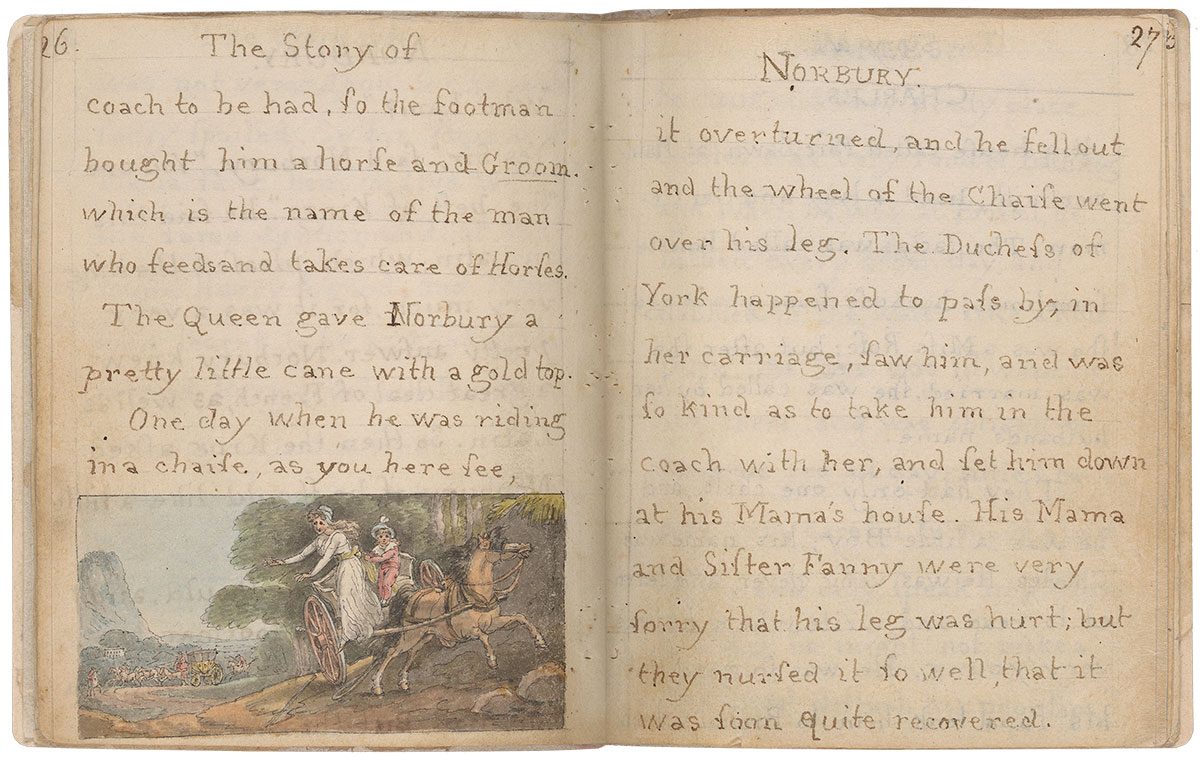 26.
The Story of
coach to be had, ſo the footman
bought him a horſe and Groom.
which is the name of the man
who feedsand takes care of Horſes.
The Queen gave Norbury a
pretty little cane with a gold top.
One day when he was riding
in a chaiſe, as you here ſee,
27
NORBURY.
it overturned, and he fell out
and the wheel of the Chaiſe went
over his leg. The Ducheſs of
York happened to paſs by, in
her carriage, ſaw him, and was
ſo kind as to take him in the
coach with her, and ſet him down
at his Mama's houſe. His Mama
and Siſter Fanny were very
ſorry that his leg was hurt; but
they nurſed it ſo well, that it
was ſoon quite recovered.